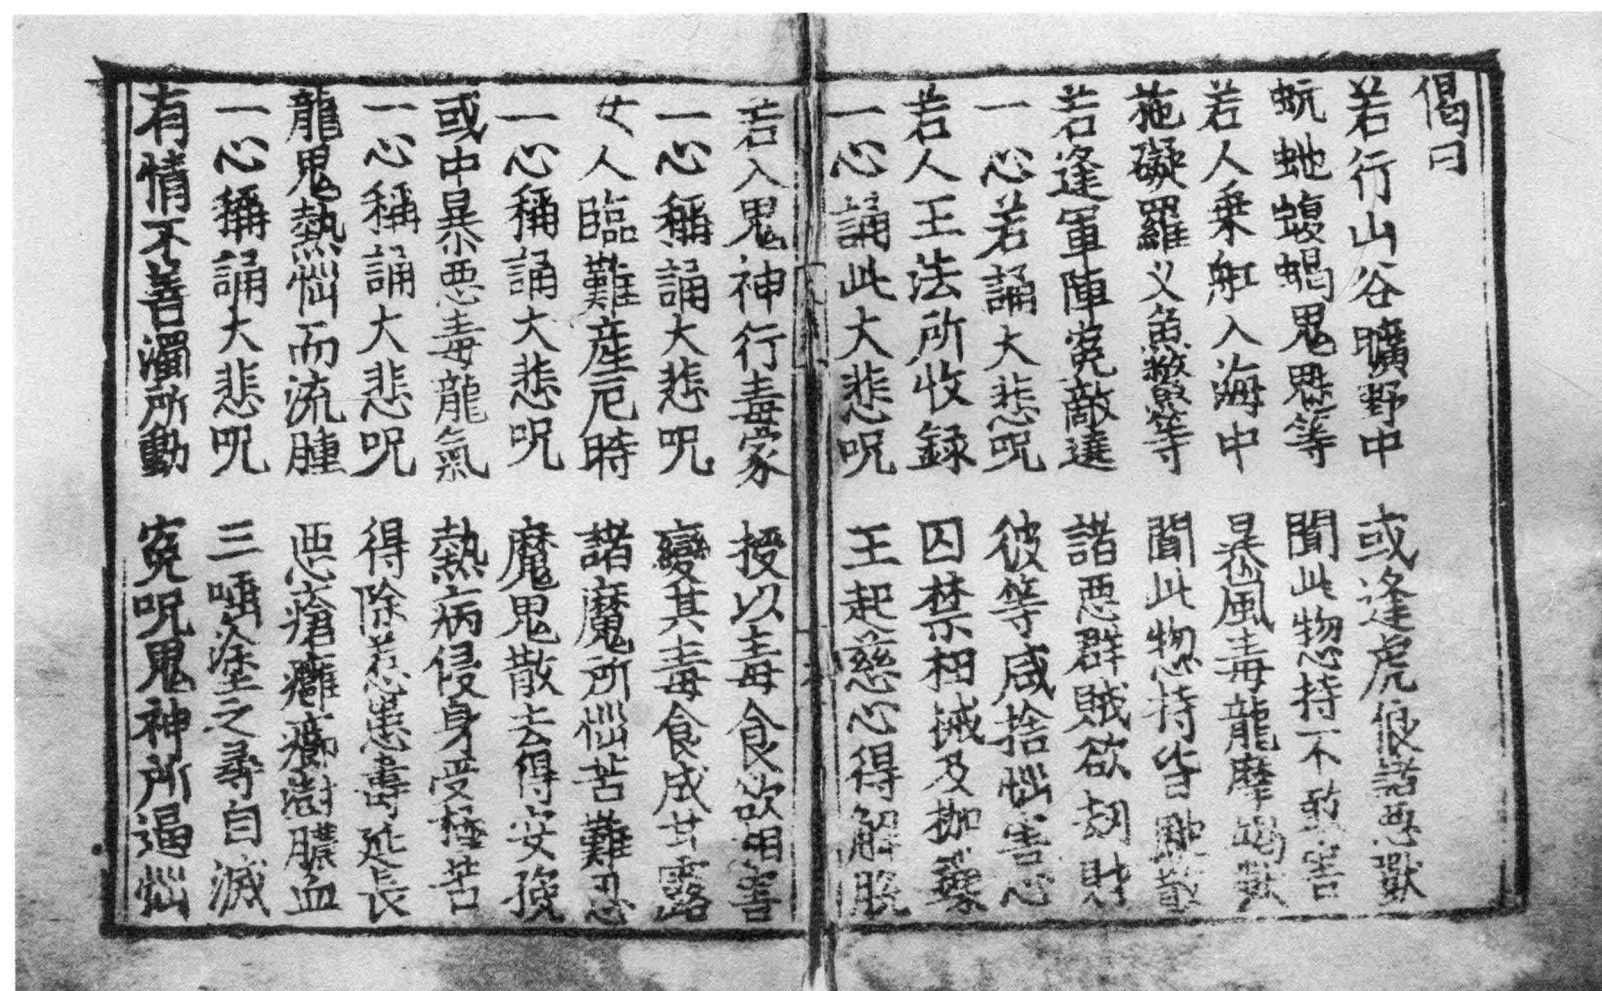 偈曰
若行山谷曠野中　或逢虎狼諸惡獸
蚖虵蝮蝎鬼魅等　聞此捴持不敢害
若人乗舡入海中　暴風毒龍摩竭獸
施礙羅义魚鱉等　聞此捴持皆馳散
若逢軍陣寃敵遶　諸惡群賊欲刼財
一心若誦大悲呪　彼等咸捨惱害心
若人王法所收録　囚禁杻械及枷鏁
一心誦此大悲呪　王起慈心得解脱
若入鬼神行毒家　授以毒食欲相害
一心稱誦大悲呪　變其毒食成甘露
女人臨難産厄時　諸魔所惱苦難忍
一心稱誦大悲呪　魔鬼散去得安
或中暴惡毒龍氣　熱病侵身受極苦
一心稱誦大悲呪　得除患壽延長
龍鬼熱惱而流腫　惡瘡癰癤澍膿血
一心稱誦大悲呪　三唾塗之尋自滅
有情不善濁所動　寃呪鬼神所逼惱